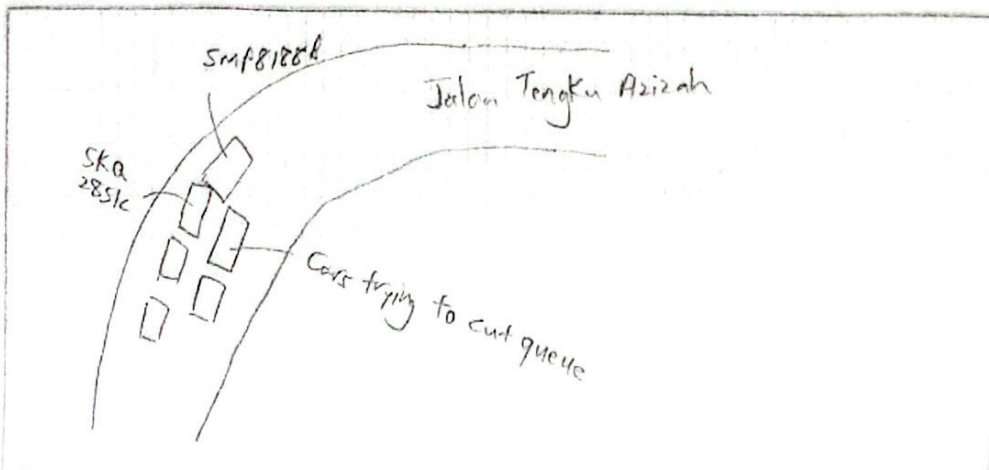 SMP8188R
Jalan Tengku Azizah
SKQ
2851C
Cars trying to cut queue